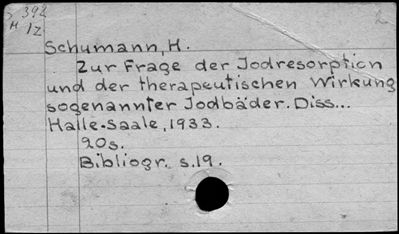 S 392
M 12
2
Schumann, H.
Zur Frage der Jodresorption
und der therapeutischen Wirkung
sogenannter Jodbäder. Diss...
Halle-Saale, 1933.
20s.
Bibliogr. s.19.